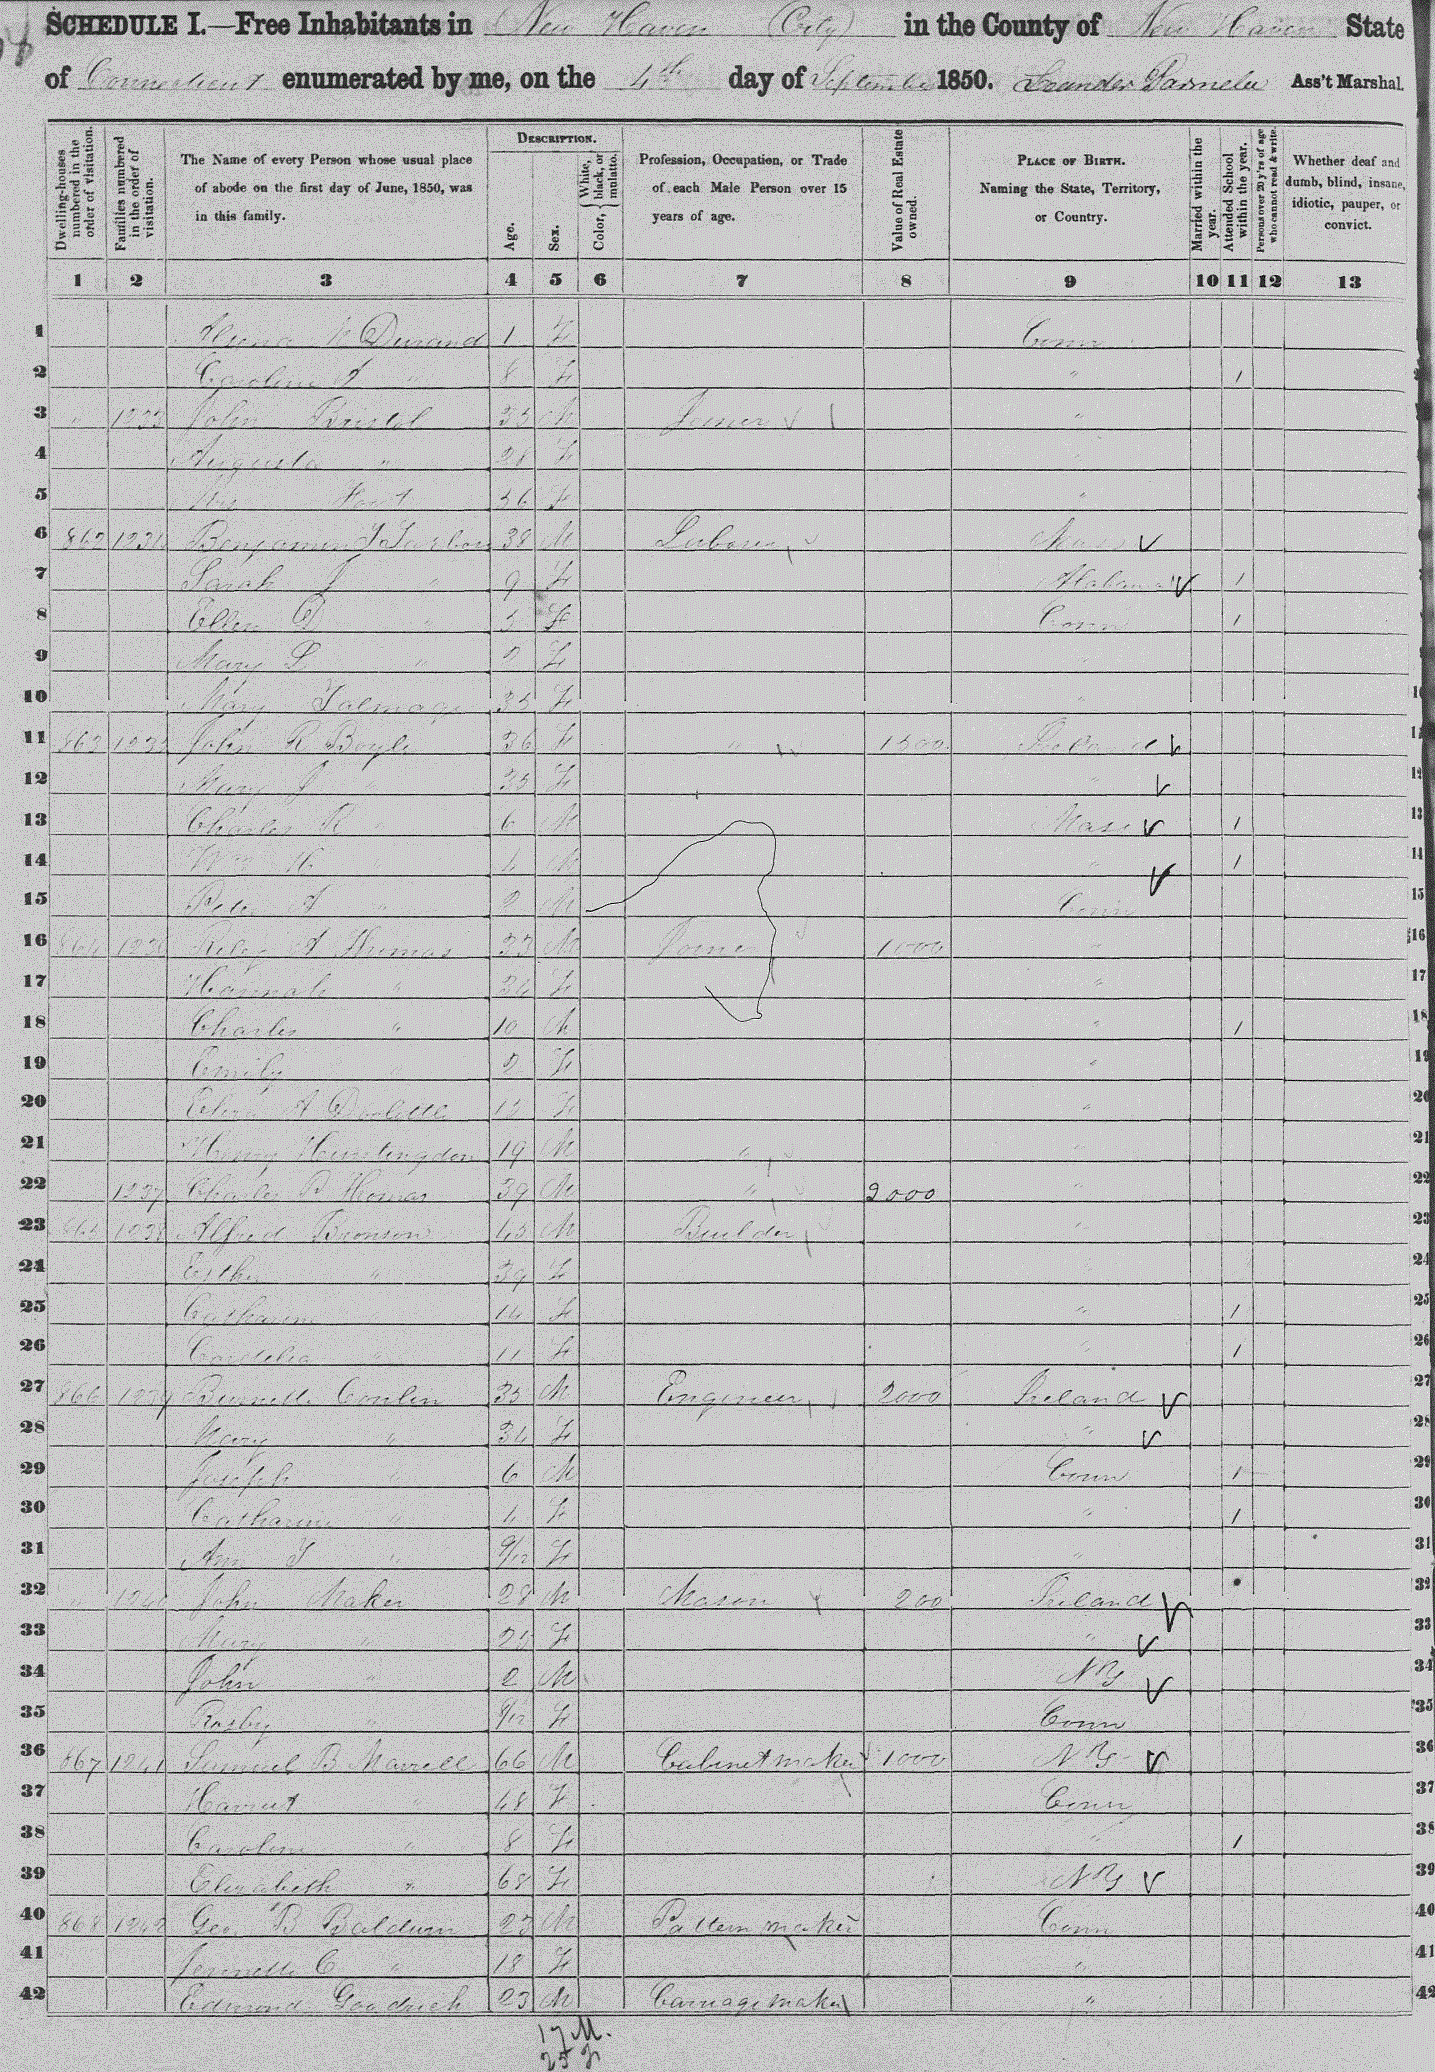 SCHEDULE I.—Free Inhabitants in New Haven (City) in the County of New Haven State
of Connecticut enumerated by me, on the 4th day of September 1850. Leander Parmelee Ass't Marshal.
Dwelling-houses numbered in the order of visitation.
Families numbered in the order of visitation.
The Name of every Person whose usual place of abode on the first day of June, 1850, was in this family.
DESCRIPTION.
Age.
Sex.
Color, { White, black, or mulatto.
Profession, Occupation, or Trade of each Male Person over 15 years of age.
Value of Real Estate owned.
PLACE OF BIRTH. Naming the State, Territory, or Country.
Married within the year.
Attended School within the year.
Persons over 20 y'rs of age who cannot read & write.
Whether deaf and dumb, blind, insane, idiotic, pauper, or convict.
1 2 3 4 5 6 7 8 9 10 11 12 13
1 Durand 1 F Conn
2 Caroline A " 8 F " 1
3 " 1233 John Bristol 35 M Joiner "
4 Augusta " 28 F "
5 36 F "
6 862 1234 Benjamin F 38 M Laborer Mass
7 Sarah J " 9 F Alabama 1
8 Ellen D " 5 F Conn 1
9 Mary L " 2 F "
10 Mary Talmage 35 F "
11 863 1235 John R Boyle 36 F " 1500 Ireland
12 Mary J " 35 F "
13 Charles R " 6 M Mass 1
14 Wm H " 4 M " 1
15 Peter A " 2 M Conn
16 864 1236 Riley A Thomas 33 M Joiner 1000 "
17 Hannah " 34 F "
18 Charles " 10 M " 1
19 Emily " 2 F "
20 F "
21 Henry Huntingdon 19 M " "
22 1237 Charles B Thomas 39 M " 2000 "
23 865 1238 Alfred Bronson 43 M Builder "
24 Esther " 39 F "
25 Catharine " 14 F " 1
26 Cordelia " 11 F " 1
27 866 1239 Conlin 35 M Engineer 2000 Ireland
28 Mary " 34 F "
29 Joseph " 6 M Conn 1
30 Catharine " 4 F " 1
31 Ann T " 9/12 F "
32 " 1240 John Maher 28 M Mason 200 Ireland
33 Mary " 25 F "
34 John " 2 M NY
35 " 9/12 F Conn
36 867 1241 Samuel B 66 M Cabinet maker 1000 NY
37 Harriet " 48 F Conn
38 Caroline " 8 F " 1
39 Elizabeth " 68 F NY
40 868 1242 Geo B Baldwin 23 M Pattern maker Conn
41 Jennette C " 18 F "
42 Edmond Goodrich 23 M Carriage maker "
17 M.
25 F